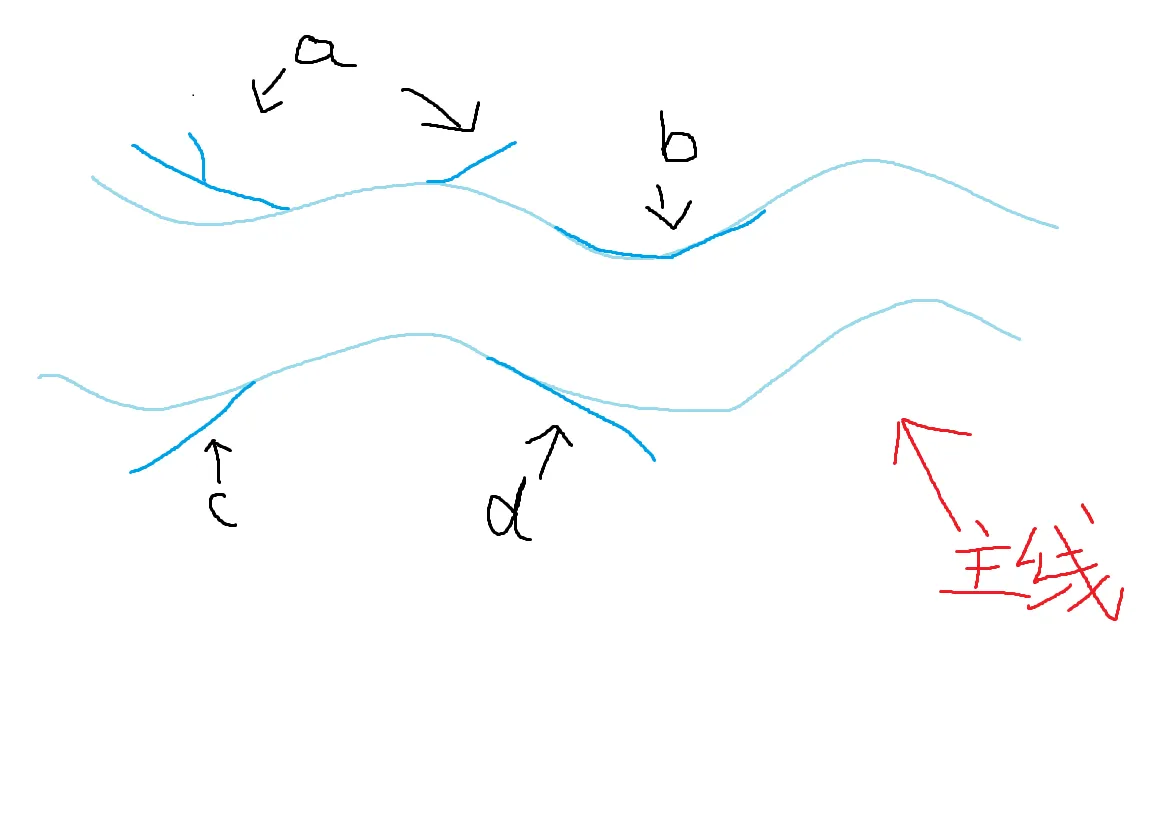 a
b
c
d
主线